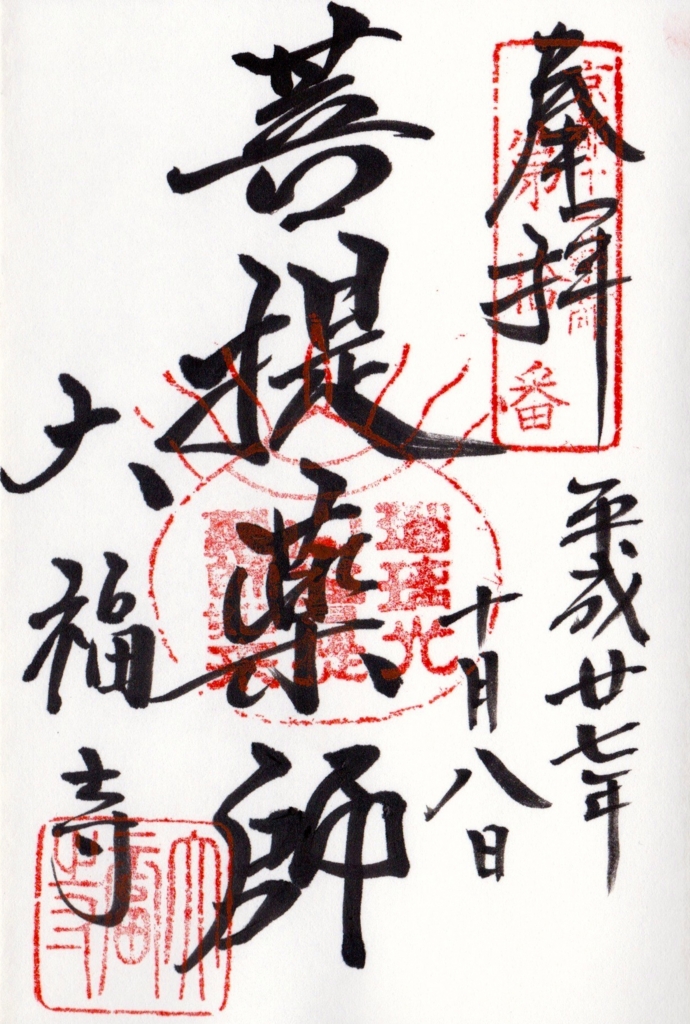 奉拝
第
番
平成廿七年
十月八日
菩提薬師
瑠璃光
大福寺
大福寺